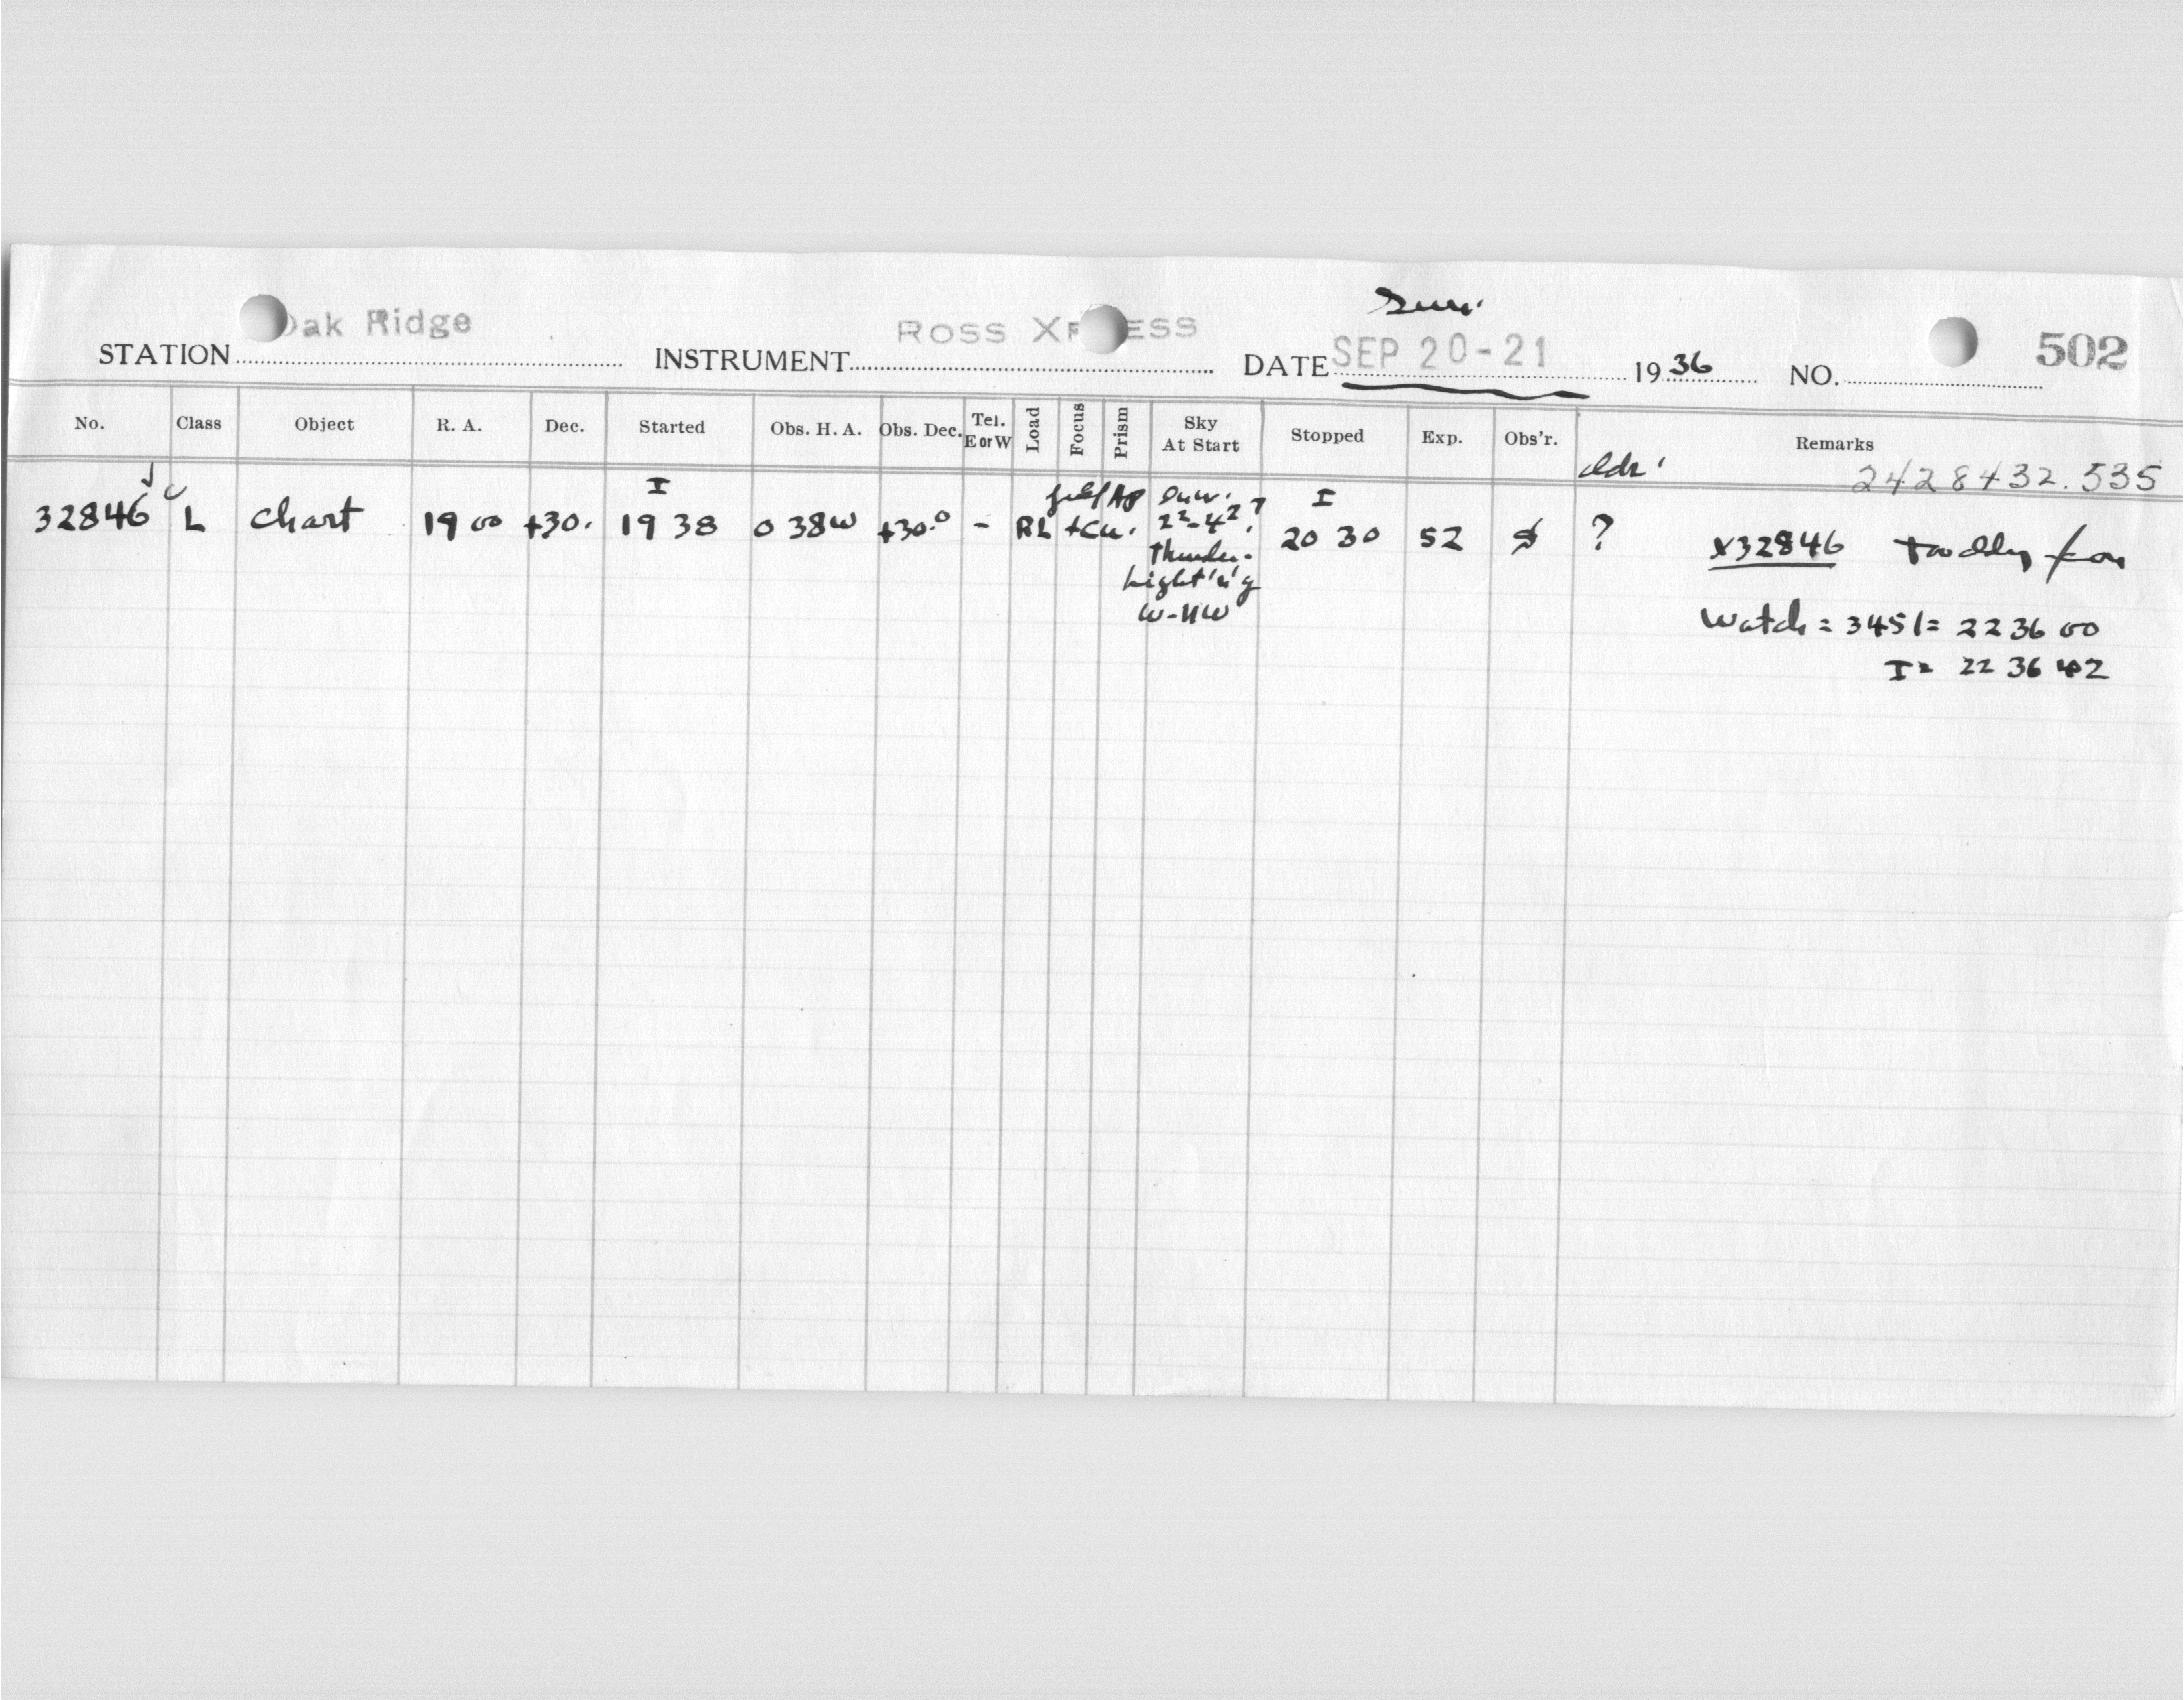 Sun.
STATION Oak Ridge INSTRUMENT ROSS XPRESS DATE SEP 20-21 1936 NO. 502
No. Class Object R. A. Dec. Started Obs. H. A. Obs. Dec. Tel. E or W Load Focus Prism Sky At Start Stopped Exp. Obs'r. Remarks
2428432.535
I I
32846 L Chart 19 00 +30. 19 38 0 38W +30.0 - RL +Cu. 20 30 52 ?
Thunder.
Light'n'g
W-NW
X32846
Watch = 3451 = 22 36 00
I = 22 36 42